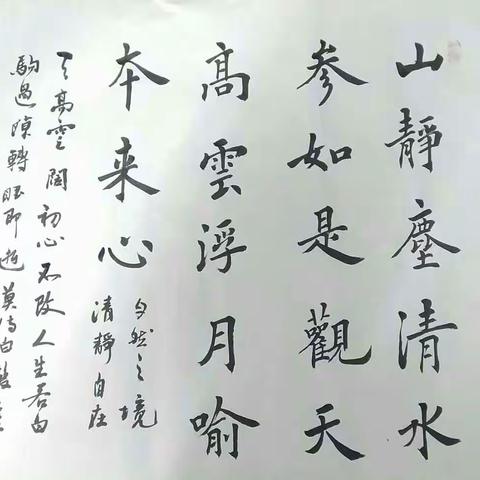 山靜塵清水
參如是觀天
高雲浮月喻
本来心
自然之境
清靜自在
天高雲闊初心不改人生若白
駒過隙轉眼即逝莫待白